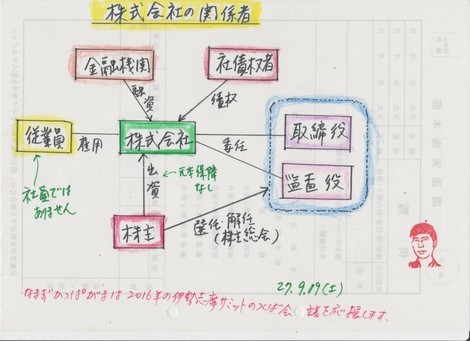 株式会社の関係者
金融機関
社債権者
融資
債権
従業員
雇用
株式会社
委任
取締役
監査役
社員では
ありません
出資
元本保障
なし
株主
選任・解任
(株主総会)
27.9.19(土)
なまず がっぱ がまは 2016年の伊勢志摩サミットのつくば会議を応援します。